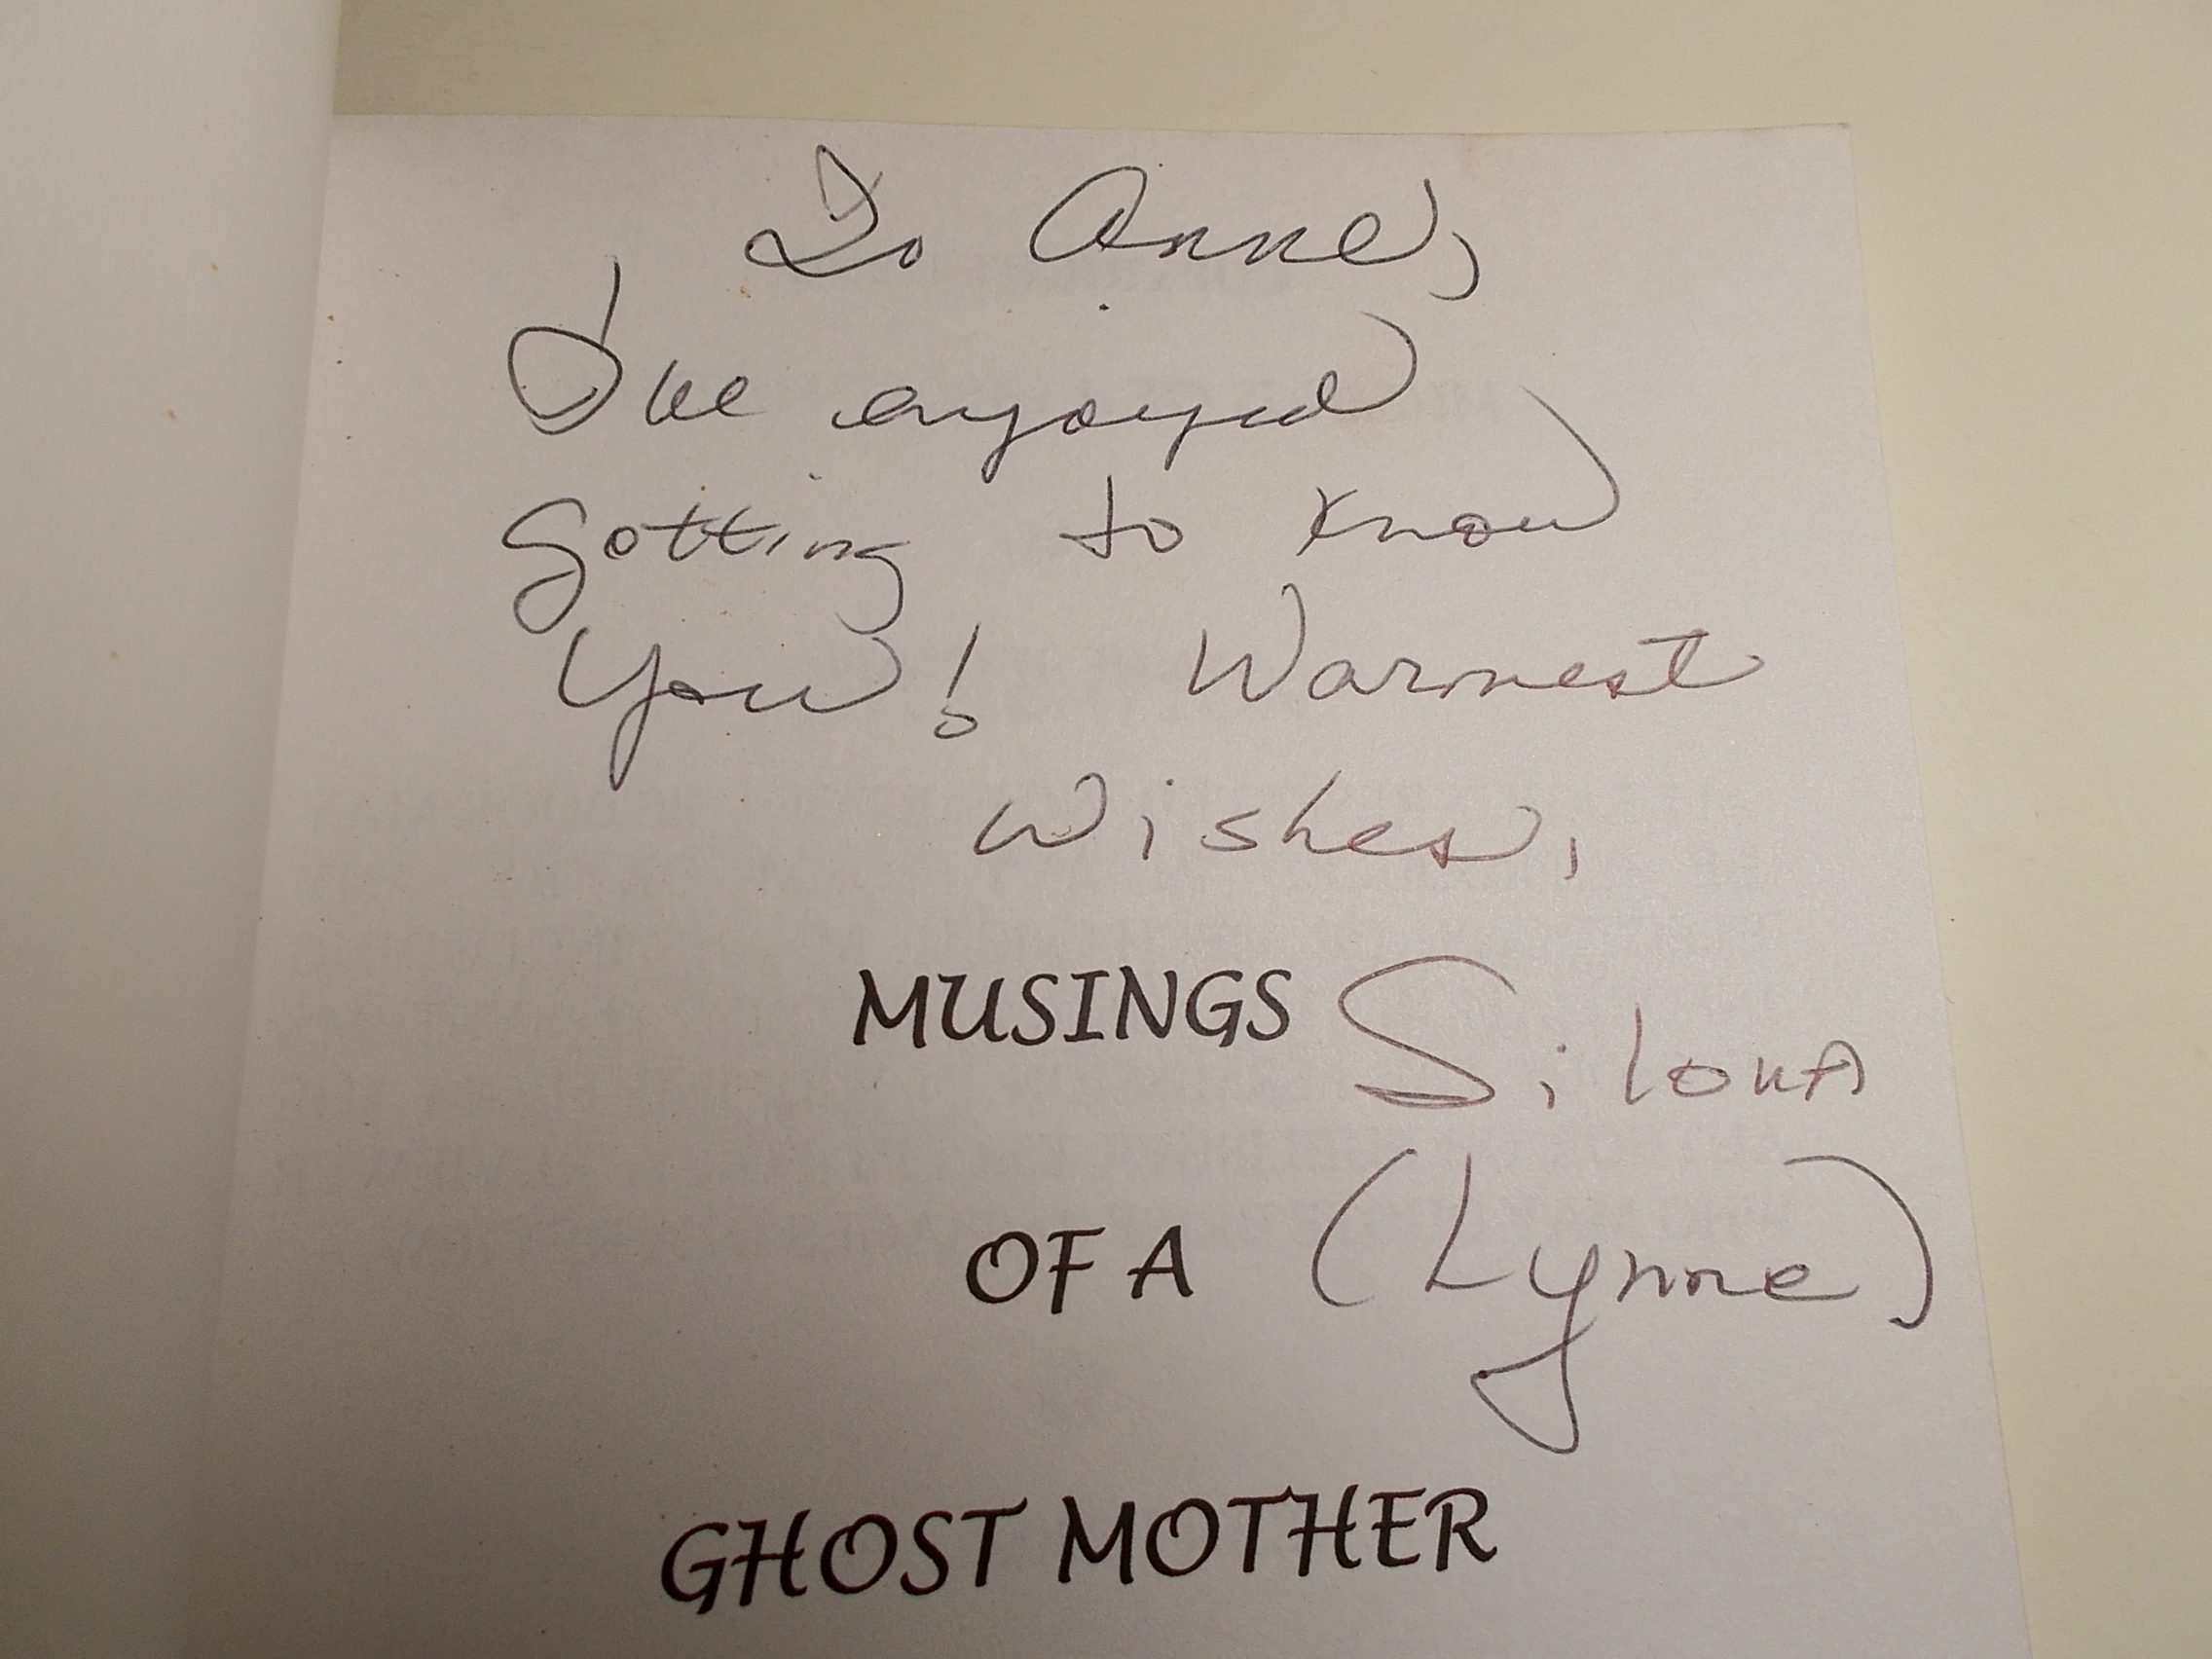 To Anne,
I've enjoyed
getting to know
you! Warmest
Wishes,
MUSINGS Silona
OF A (Lynne)
GHOST MOTHER